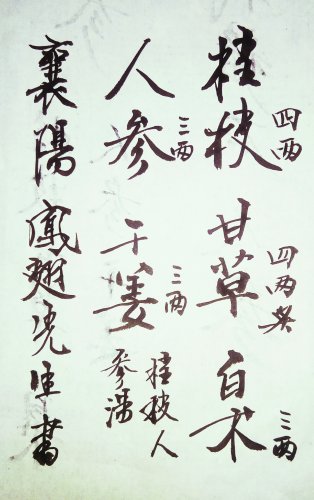 桂枝 四两 甘草 四两炙 白术 三两
人参 三两 干姜 三两
桂枝人
参湯
襄陽鳳翅先生書